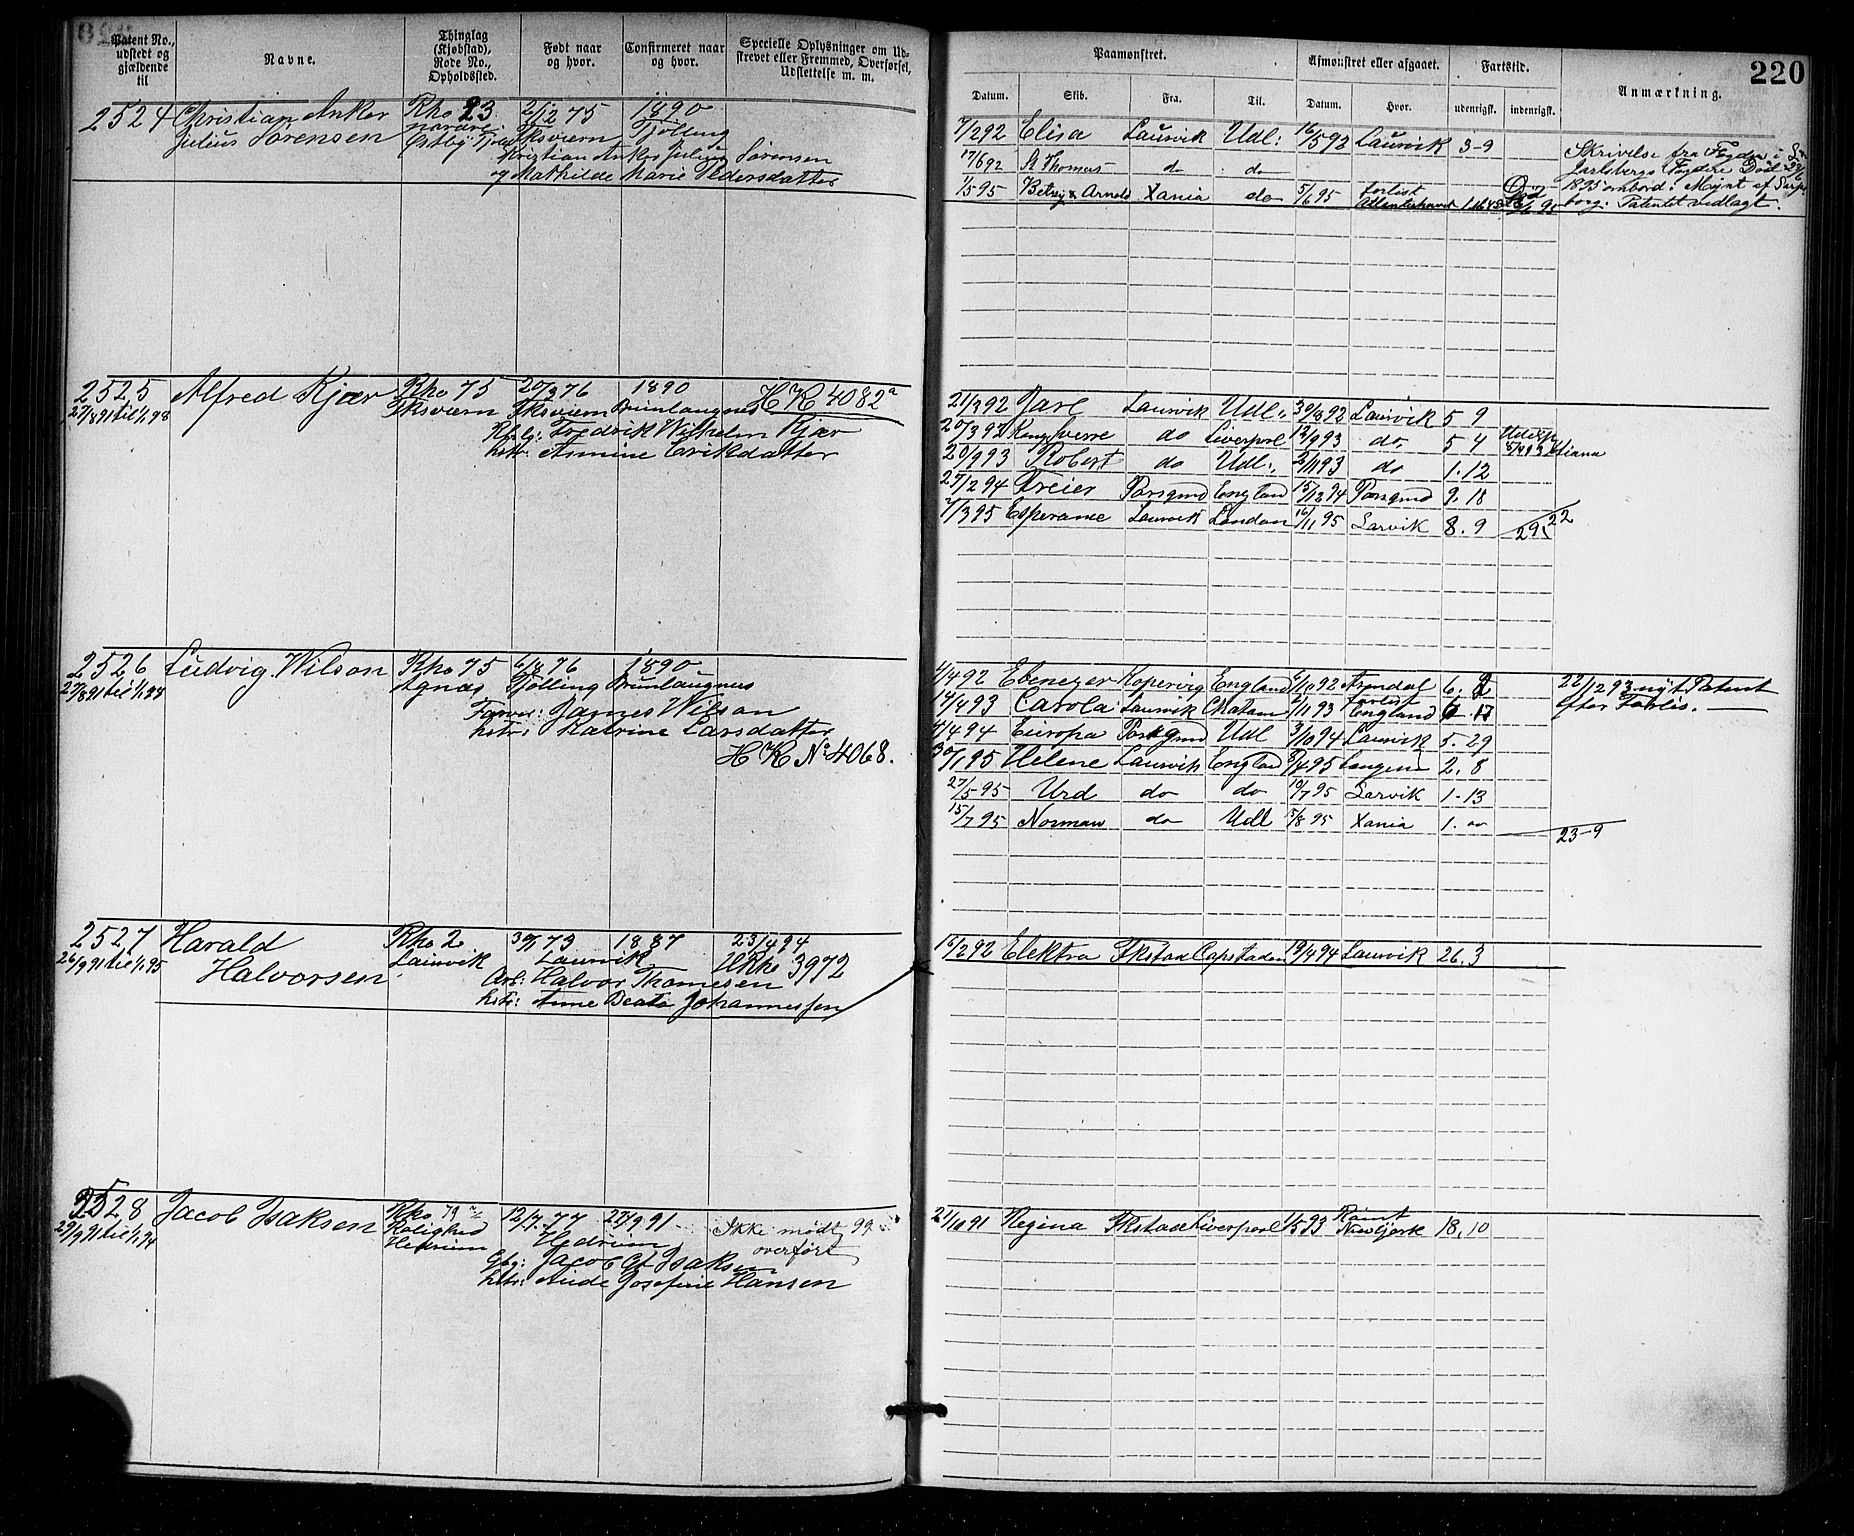 220
Patent No., udstedt og gjældende til
Navne.
Thinglag (Kjøbstad), Rode No., Opholdssted.
Født naar og hvor.
Confirmeret naar og hvor.
Specielle Oplysninger om Udstrevet eller Fremmed, Overførsel, Udslettelse m. m.
Paamønstret.
Afmønstret eller afgaaet.
Fartstid.
Anmærkning.
Datum.
Skib.
Fra.
Til.
Datum.
Hvor.
udenrigsk.
indenrigsk.
2524 Christian Anker Rho 23 2/12 75 1890
Julius Sørensen nordre Tksværn Tjølling
Østby
Kristian Anker Julius Sørensen
og Mathilde Marie Pedersdatter
7/2 92 Elisa Laurvik Udl: 16/5 92 Laurvik 3-9
17/6 92 St Thomas do do
1/5 95 Betzy & Arnold Xania do 5/6 95 forlist Atlanterhavet
Skrivelse fra Fogden i
Jarlsbergs Fogderi Død
1895 ombord i Mejnt af Sarps
borg. Patentet vedlagt.
2525 Alfred Kjær Rho 75 20/3 76 1890 HK 4082a
27/8 91 til 1/1 98 Fksværn Fksværn Brunlaugnes
Fredrik Wilhelm Kjær
hstr: Annine Erikdatter
21/3 92 Jarl Laurvik Udl: 30/8 92 Laurvik 5 9
20/3 93 Kong Sverre do Liverpool 12/9 93 do 5 4
20/9 93 Robert do Udl: 2/11 93 do 1.12
27/2 94 Freier Porsgrund England 15/12 94 Porsgrund 9.18
7/3 95 Esperance Laurvik London 16/11 95 Larvik 8.9
2526 Ludvig Wilson Rho 75 6/8 76 1890
27/8 91 til 1/1 98 Agnæs Tjølling Brunlaugnes
Farver: James Wilson
hstr: Katrine Larsdatter
HK No 4068.
4/4 92 Ebenezer Kopervig England 6/10 92 Arendal 6. 2
14/4 93 Carola Laurvik Chatam 2/11 93 forlist England 6.17
4/4 94 Europa Porsgrund Udl 3/10 94 Laurvik 5.29
30/1 95 Helene Laurvik England 8/4 95 Langesund 2.8
27/5 95 Urd do do 10/7 95 Larvik 1-13
15/7 95 Norman do Udl 15/8 95 Xania 1. oo
23-9
22/12 93 nyt Patent
efter Forlis.
2527 Harald Rho 2 30/1 73 1887 23/4 94
26/9 91 til 1/1 95 Halvorsen Laurvik Laurvik HRho 3972
Arb: Halvor Thomesen
hstr: Anne Beata Johannessen
16/2 92 Elektra Fkstad Capstaden 19/4 94 Laurvik 26.3
2528 Jacob Isaksen Rho 79 12/7 77 27/9 91 Ikke mødt 99
29/9 91 til 1/1 94 Rolighed Hedrum Hedrum overført
Gbg: Jacob Isaksen
hstr: Aude Josefine Hansen
21/10 91 Regina Fkstad Liverpool 1/5 93 Rømt New York 18.10